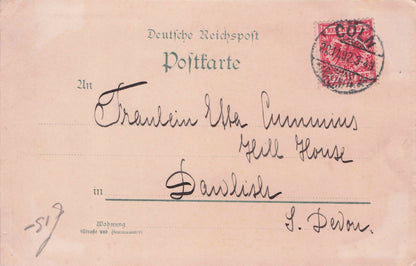 Deutsche Reichspost
Postkarte
CÖLN
An
Fräulein Etta Cummins
Hill House
in
Dawlish
S. Devon.
Wohnung
(Straße und Hausnummer)